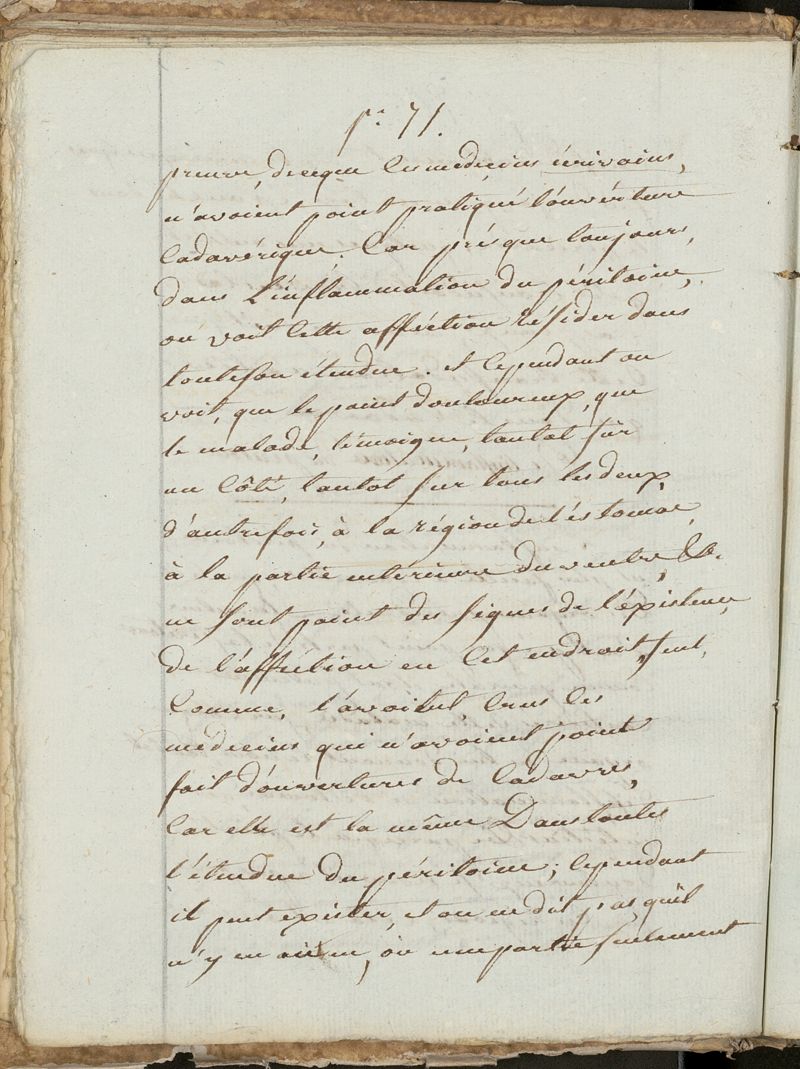 p.ᵃ 71.
preuve, de ce que les medecins écrivains,
n'avoient point pratiqué l'ouvérture
Cadavérique. Car présque toujours,
dans l'inflammation du péritoine,
on voit cette afféction résider dans
toute son étendue. et cependant on
voit, que le point douloureux, que
le malade, témoigne, tantot sur
un côté, tantot sur tous les deux,
d'autrefois, à la région de l'éstomac,
à la partie intérieure du ventre, &c.
ne sont point des signes de l'éxistence
de l'afféction en cet endroit, seul,
Comme, l'avoient, crus les
médecins qui n'avoient point
fait d'ouvertures de Cadavres,
Car elle est la même Dans toutes
l'étendue du péritoine; cependant
il peut exister, et on ne dit pas qu'il
n'y en aie, où une partie seulement